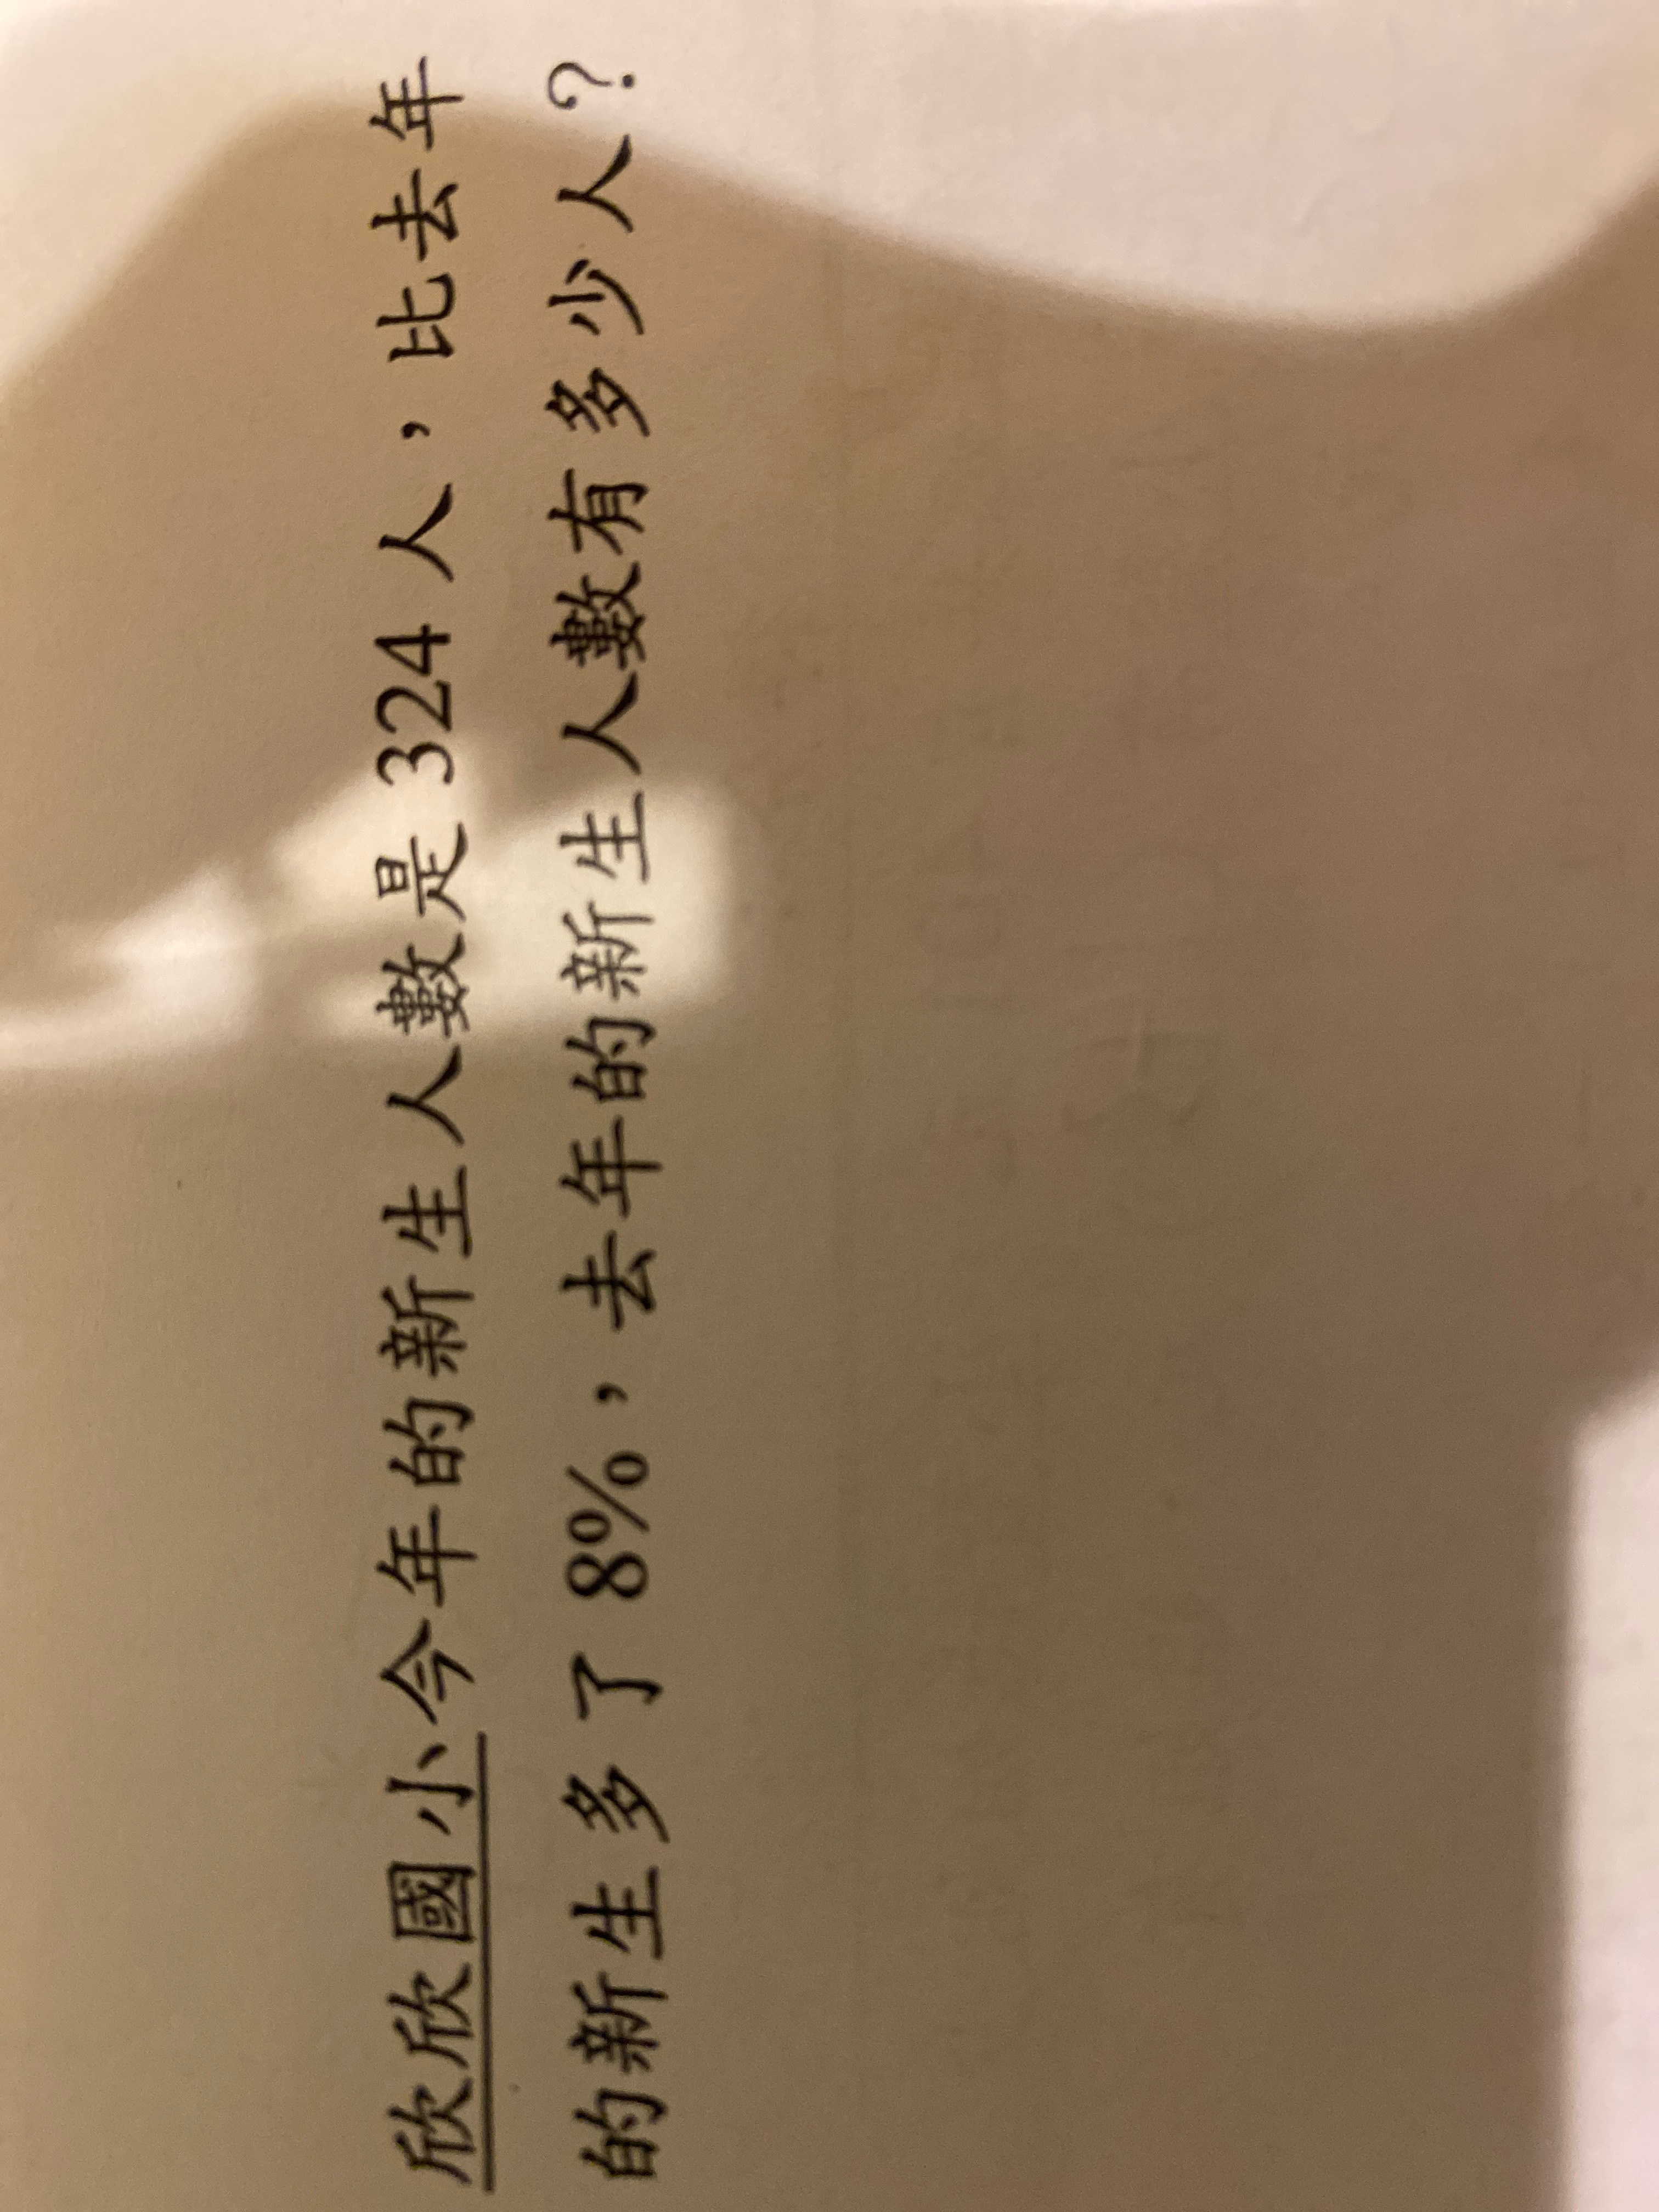 欣欣國小今年的新生人數是 324 人，比去年
的新生多了 8%，去年的新生人數有多少人？